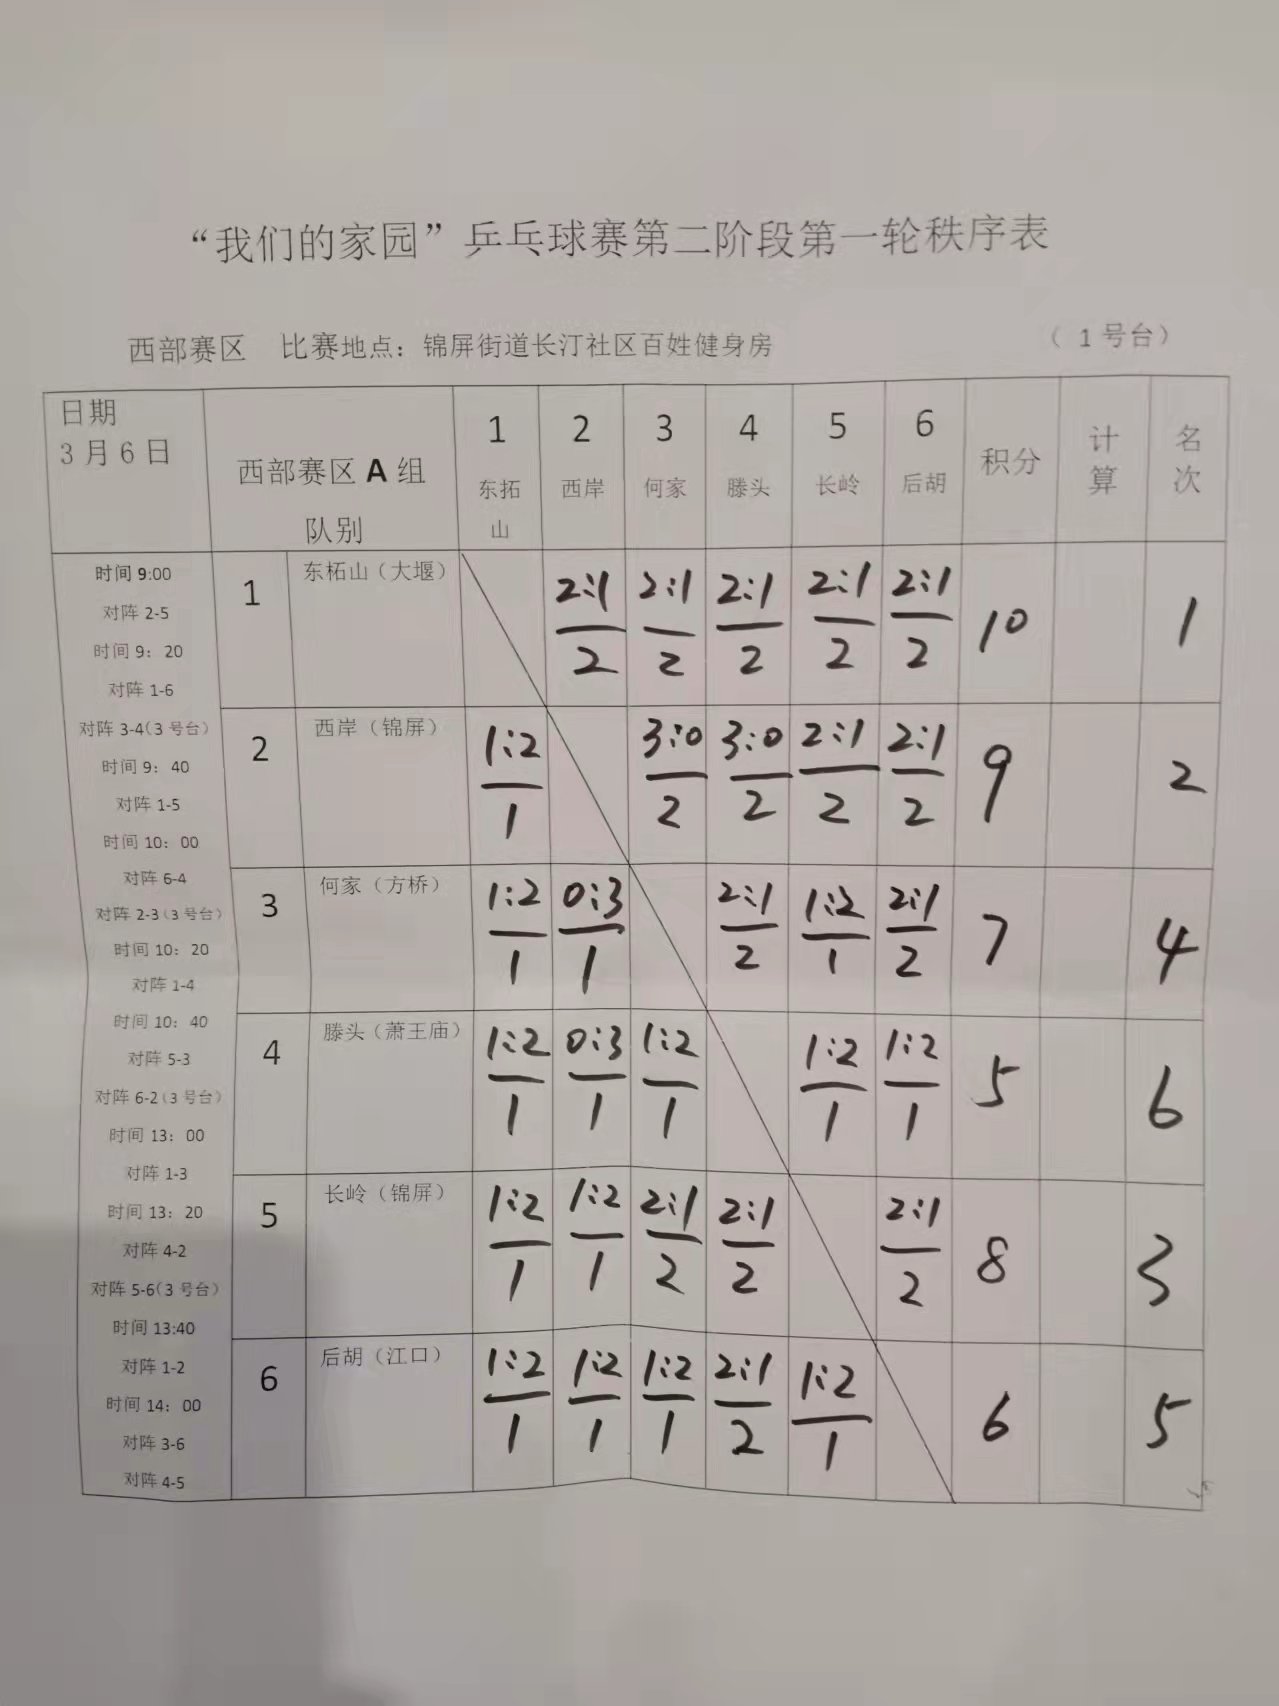 “我们的家园”乒乓球赛第二阶段第一轮秩序表
西部赛区 比赛地点：锦屏街道长汀社区百姓健身房 （ 1 号台）
日期
3 月 6 日
西部赛区 A 组
队别
1 2 3 4 5 6
东拓山 西岸 何家 滕头 长岭 后胡
积分 计算 名次
时间 9:00
对阵 2-5
时间 9：20
对阵 1-6
对阵 3-4（3 号台）
时间 9：40
对阵 1-5
时间 10：00
对阵 6-4
对阵 2-3（3 号台）
时间 10：20
对阵 1-4
时间 10：40
对阵 5-3
对阵 6-2（3 号台）
时间 13：00
对阵 1-3
时间 13：20
对阵 4-2
对阵 5-6（3 号台）
时间 13:40
对阵 1-2
时间 14：00
对阵 3-6
对阵 4-5
1 东柘山（大堰） 2:1 2:1 2:1 2:1 2:1 10 1
2 2 2 2 2
2 西岸（锦屏） 1:2 3:0 3:0 2:1 2:1 9 2
1 2 2 2 2
3 何家（方桥） 1:2 0:3 2:1 1:2 2:1 7 4
1 1 2 1 2
4 滕头（萧王庙） 1:2 0:3 1:2 1:2 1:2 5 6
1 1 1 1 1
5 长岭（锦屏） 1:2 1:2 2:1 2:1 2:1 8 3
1 1 2 2 2
6 后胡（江口） 1:2 1:2 1:2 2:1 1:2 6 5
1 1 1 2 1